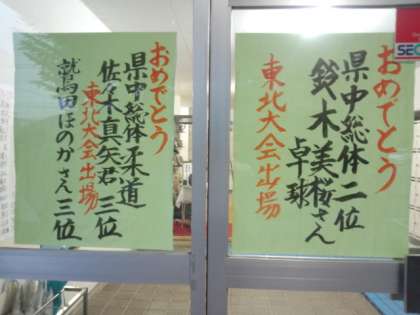 おめでとう
県中総体二位
鈴木美桜さん
卓球
東北大会出場
おめでとう
県中総体柔道
佐々木真矢君三位
東北大会出場
鷲田ほのかさん三位
SEC